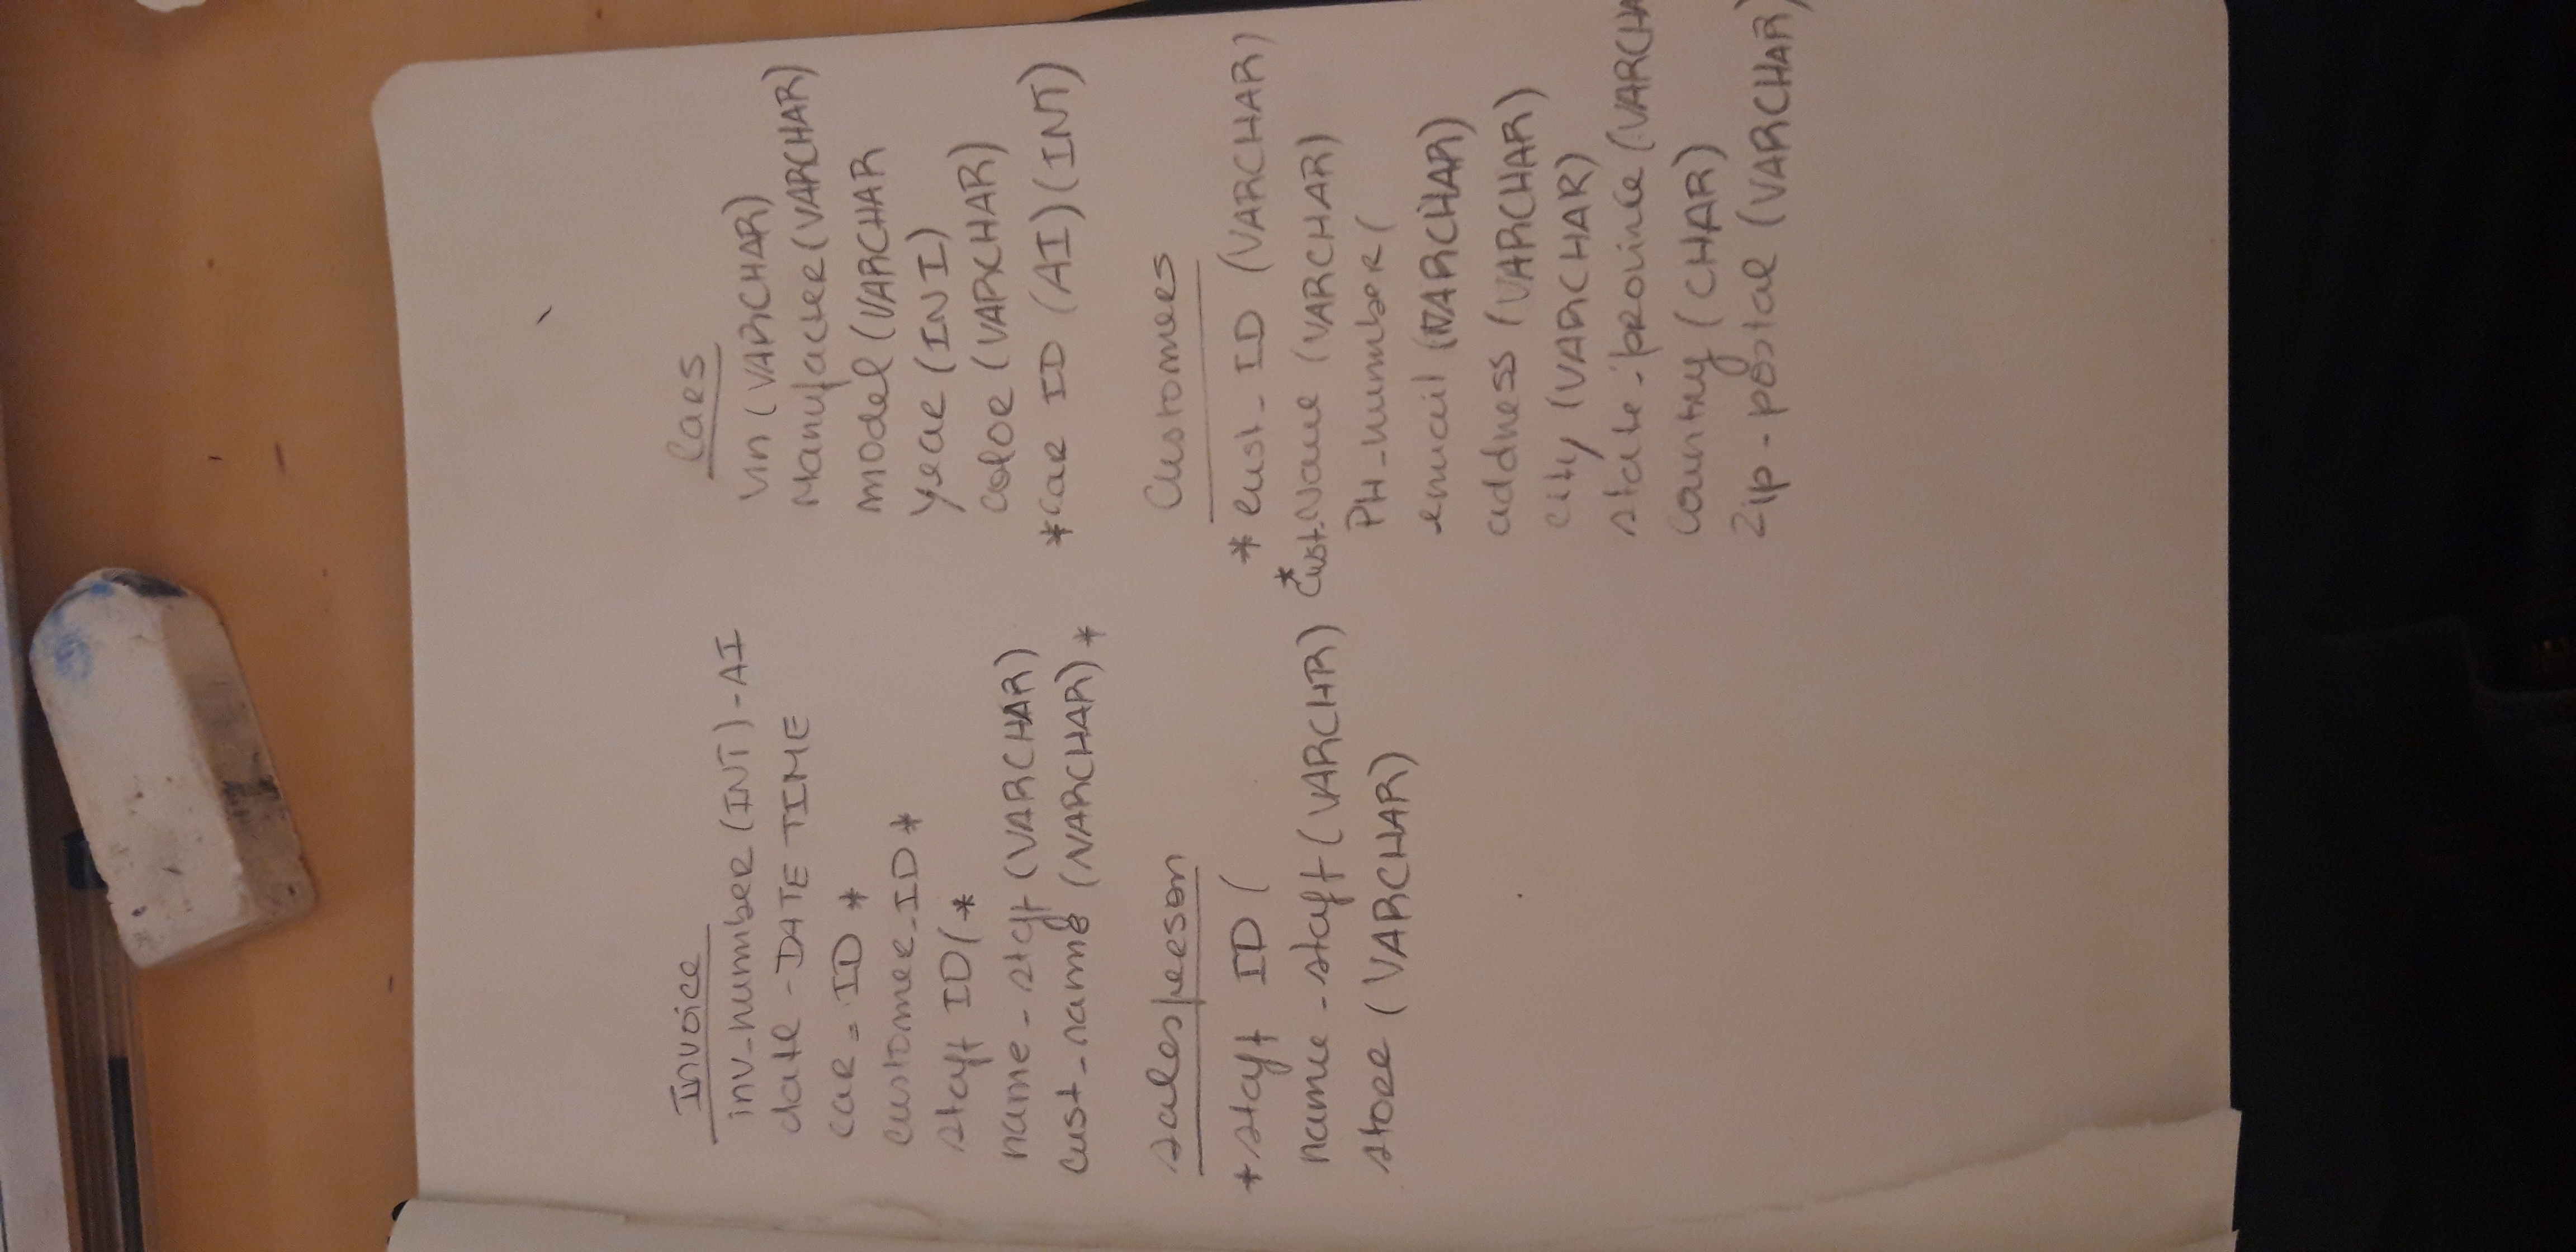 Invoice
inv_number (INT) - AI
date - DATE TIME
car - ID *
customer_ID *
staff ID ( *
name - staff (VARCHAR)
cust_name (VARCHAR) *
Salesperson
* staff ID (
name - staff (VARCHR)
store (VARCHAR)
Cars
Vin (VARCHAR)
Manufacter (VARCHAR)
model (VARCHAR
year (INT)
color (VARCHAR)
* car ID (AI) (INT)
Customers
* cust_ID (VARCHAR)
* Cust.Name (VARCHAR)
PH_number (
email (VARCHAR)
address (VARCHAR)
city (VARCHAR)
state-province (VARCHA
country (CHAR)
Zip - postal (VARCHAR)